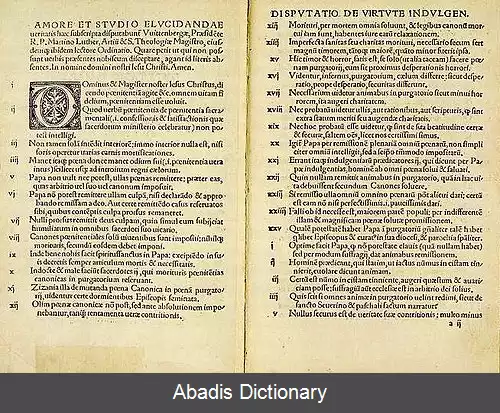 AMORE ET STVDIO ELVCIDANDAE
ueritatis hæc subscripta disputabunť Vuittenbergæ, Præsidēte
R. P. Martino Luther, Artiū & S. Theologiæ Magistro, eiusf-
demq; ibidem lectore Ordinario. Quare petit ut qui non pos-
sunt uerbis præsentes nobiscum disceptare, agant id literis ab-
sentes. In nomine domini nostri Iesu Christi. Amen.
i Dominus & Magister noster Iesus Christus, di-
cendo pœnitentiā agite &c. omnem uitam fi-
delium, pœnitentiam esse uoluit.
ij Quod uerbū pœnitentiæ de pœnitentia sacra-
mentali (.i. confessionis & satisfactionis quæ
sacerdotum ministerio celebratur) non po-
test intelligi.
iij Non tamen solā intēdit interiorē: immo interior nulla est, nisi
foris operetur uarias carnis mortificationes.
iiij Manet itaq; pœna donec manet odium sui, (.i. pœnitentia uera
intus) scilicet usq; ad introitum regni cælorum.
v Papa non uult nec potest, ullas pœnas remittere: præter eas,
quas arbitrio uel suo uel canonum imposuit.
vj Papa nō potest remittere ullam culpā, nisi declarādo & appro-
bando remissam a deo. Aut certe remittēdo casus reseruatos
sibi, quibus contēptis culpa prorsus remaneret.
vij Nulli prorsus remittit deus culpam, quin simul eum subijciat
humiliatum in omnibus sacerdoti suo uicario.
viij Canones pœnitentiales solū uiuentibus sunt impositi: nihilq;
morituris, secundū eosdem debet imponi.
ix Inde bene nobis facit spiritussanctus in Papa: excipiēdo in su-
is decretis semper articulum mortis & necessitatis.
x Indocte & male faciūt sacerdotes ij, qui morituris pœnitētias
canonicas in purgatorium reseruant.
xj Zizania illa de mutanda pœna Canonica in pœnā purgato-
rij, uidentur certe dormientibus Episcopis seminata.
xij Olim pœnæ canonicæ nō post, sed ante absolutionem impo-
nebantur, tanq̄ tentamenta ueræ contritionis.
DISPVTATIO DE VIRTVTE INDVLGEN.
xiij Morituri, per mortem omnia soluunt, & legibus canonū mor-
tui iam sunt, habentes iure earū relaxationem.
xiiij Imperfecta sanitas seu charitas morituri, necessario secum fert
magnū timorem, tātoq; maiorē, quāto minor fuerit ipsa.
xv Hic timor & horror, satis est, se solo (ut alia taceam) facere pœ-
nam purgatorij, cum sit proximus desperationis horrori.
xvj Videntur, infernus, purgatorium, cælum differre: sicut despe-
ratio, prope desperatio, securitas differunt.
xvij Necessarium uidetur animabus in purgatorio sicut minui hor-
rorem, ita augeri charitatem.
xviij Nec probatū uidetur ullis, aut rationibus, aut scripturis, q̄ sint
extra statum meriti seu augendæ charitatis.
xix Nec hoc probatū esse uidetur, q̄ sint de sua beatitudine certæ
& securæ, saltem oēs, licet nos certissimi simus.
xx Igiť Papa per remissionē plenariā omniū pœnarum, non simpli-
citer omniū intelligit, sed a seipso tātūmodo impositarū.
xxj Errant itaq; indulgentiarū prædicatores ij, qui dicunt per Pa-
pæ indulgentias, hominē ab omni pœna solui & saluari.
xxij Quin nullam remittit animabus in purgatorio, quā in hac ui-
ta debuissent secundum Canones soluere.
xxiij Si remissio ulla omniū omnino pœnarū pōt alicui dari, certū
est eam nō nisi perfectissimis .i. paucissimis dari.
xxiiij Falli ob id necesse est, maiorem partē populi: per indifferentē
illam & magnificam pœnæ solutæ promissionem.
xxv Qualē potestatē habet Papa ī purgatoriū gn̄aliter talē habet
quilibet Episcopus & curatus in sua diœcesi, & parochia spāliter.
i Optime facit Papa, q̄ nō potestate clauis (quā nullam habet)
sed per modum suffragij, dat animabus remissionem.
ij Hominē prædicant, qui statim, ut iactus nūmus in cistam tin-
nierit, euolare dicunt animam.
iij Certū est nūmo in cistam tinniente, augeri quæstum & auari-
tiam posse: suffragiū aūt ecclesiæ est in arbitrio dei solius.
iiij Quis scit si omnes animæ in purgatorio uelint redimi, sicut de
sancto Seuerino & paschali factum narratur?
v Nullus securus est de ueritate suæ contritionis; multo minus
a ij
Abadis Dictionary